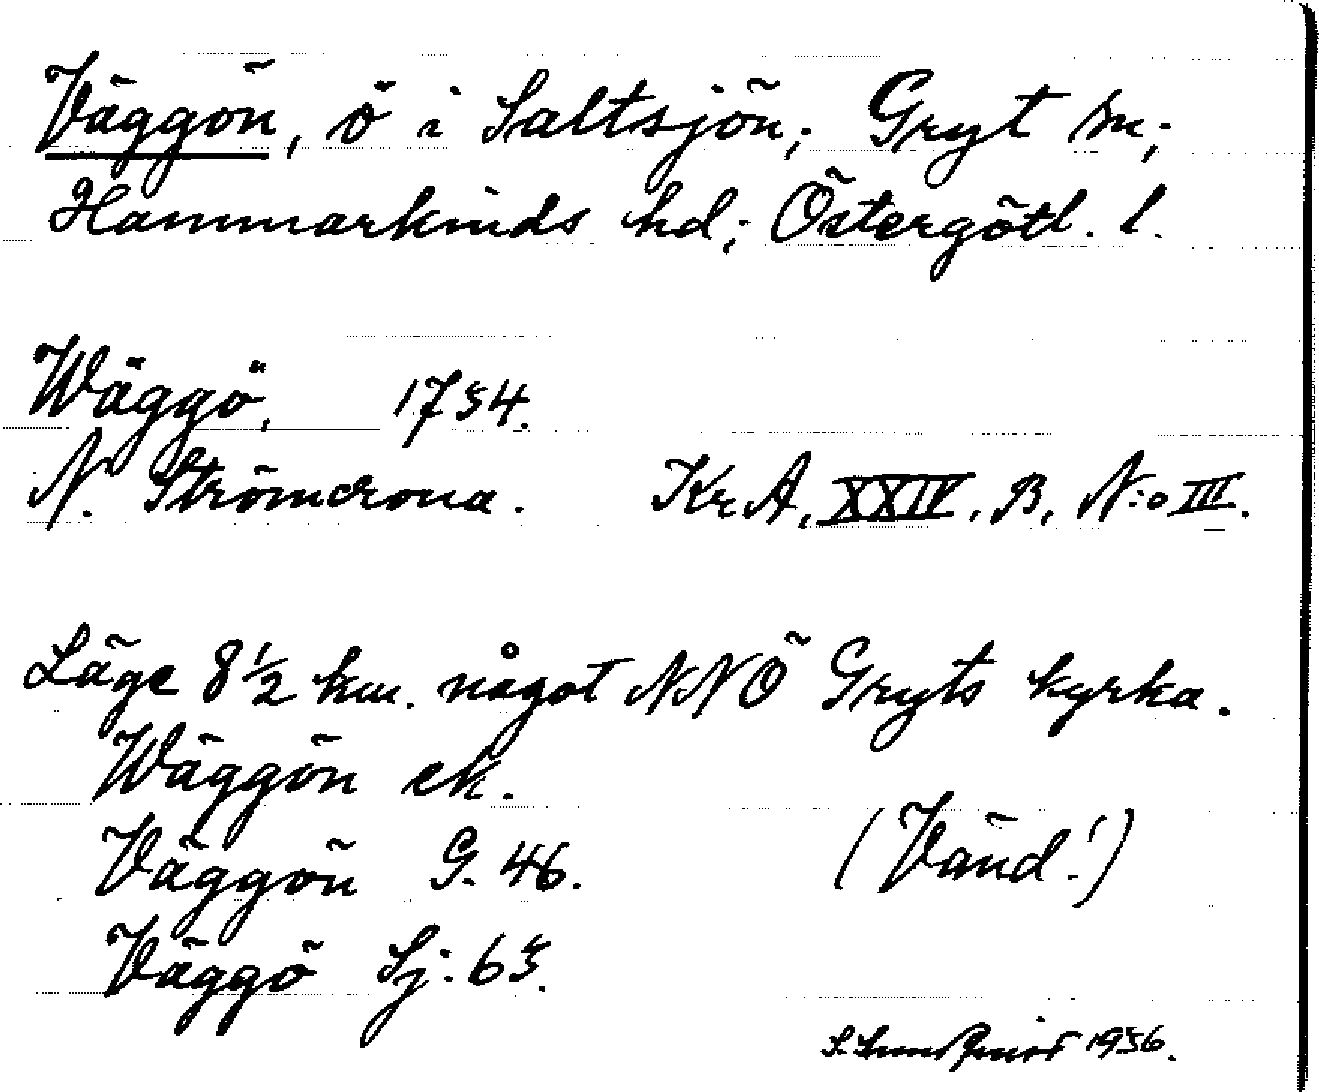 Väggön, ö i Saltsjön; Gryt sn;
Hammarkinds hd; Östergötl. l.
Wäggö, 1734.
N. Strömcrona. Kr.A, XXIV, B, N:o III.
Läge 8 1/2 km. något NNÖ Gryts kyrka.
Wäggön ek.
Väggön G. 46. (Vänd!)
Väggö Sj. 63.
1936.